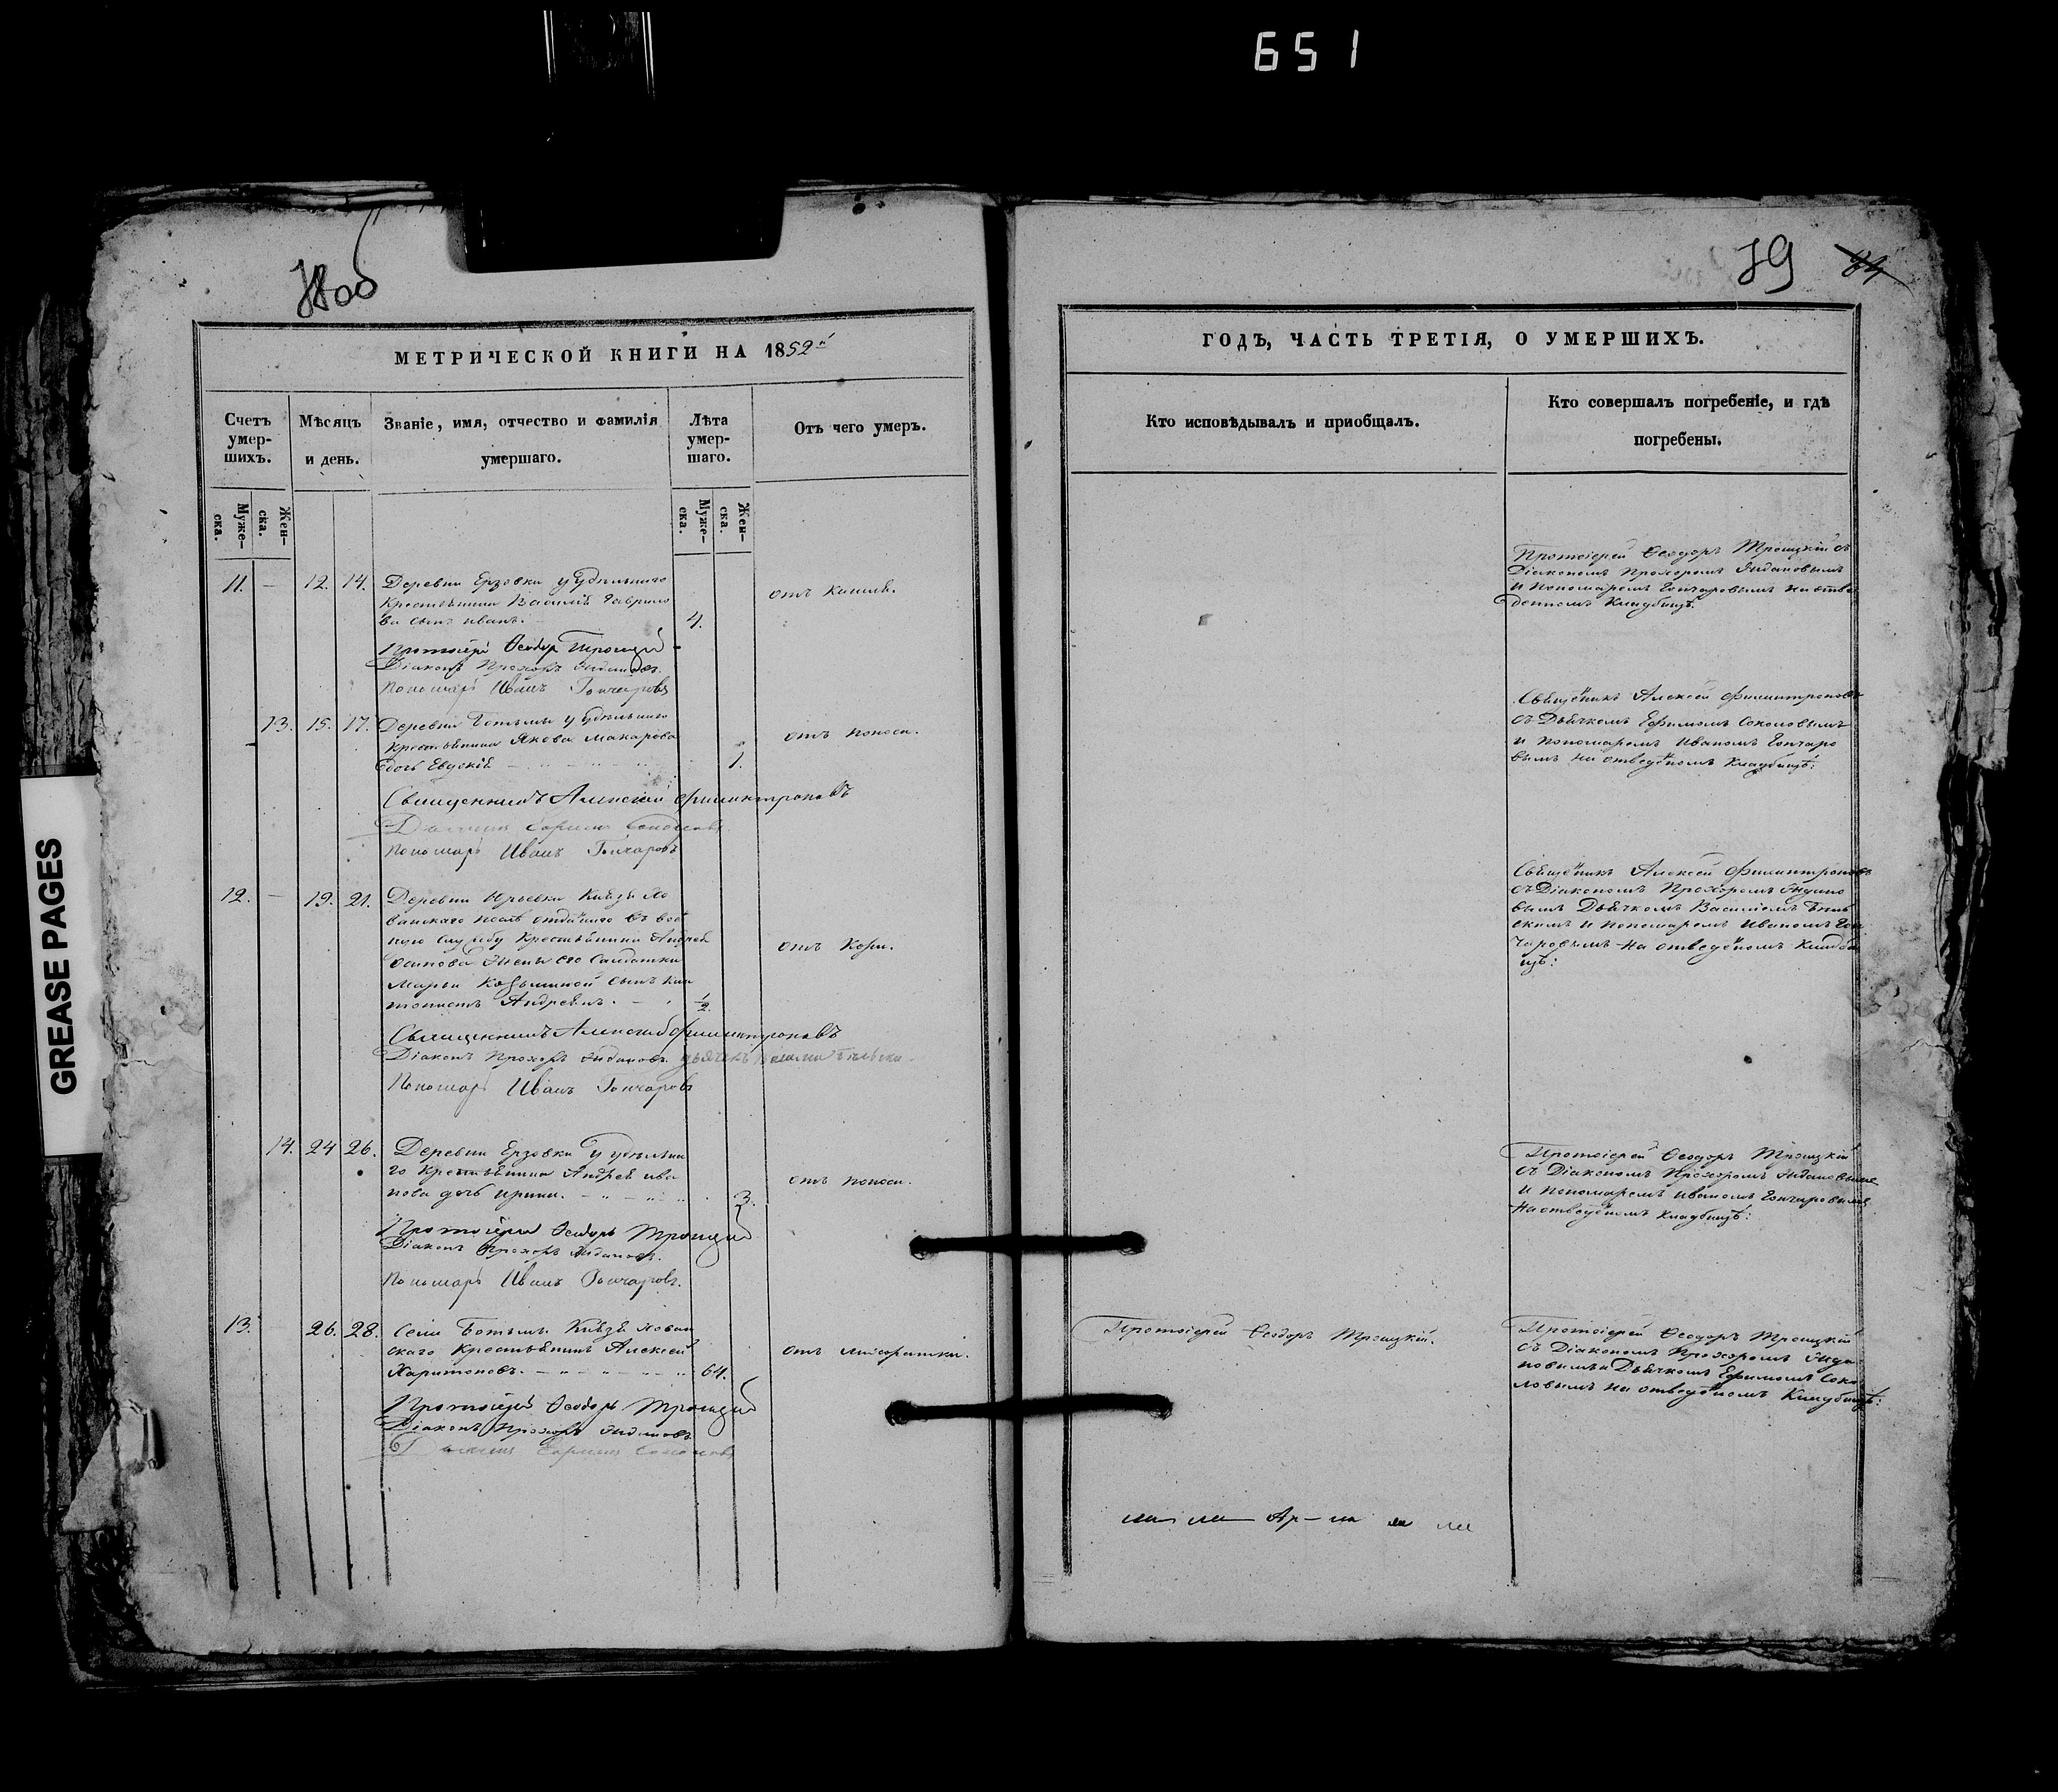 651
GREASE PAGES
79
МЕТРИЧЕСКОЙ КНИГИ НА 1852й
Счетъ умер- шихъ.
Мѣсяцъ и день.
Званіе, имя, отчество и фамилія умершаго.
Лѣта умер- шаго.
Отъ чего умеръ.
Муже- ска.
Жен- ска.
Муже- ска.
Жен- ска.
11. — 12. 14. Деревни Ерзовки удѣльнаго
крестьянина Василія Гаврило
ва сынъ Иванъ. 4.
отъ кашля.
Протоіерей Ѳеодоръ Троицкій
Діаконъ Прохоръ
Пономарь Иванъ Гончаровъ
13. 15. 17. Деревни Ботьмы удѣльнаго
крестьянина Якова Макарова
дочь 1.
отъ поноса.
Священникъ Алексѣй Филантроповъ
Дьячекъ Ефимъ Соколовъ
Пономарь Иванъ Гончаровъ
12. — 19. 21. Деревни Юрьевки Князя Хо
ванскаго отданнаго въ
ную службу крестьянина Андрея
Осипова жены его Солдатки
Марьи сынъ
Андреевъ. 1/2
отъ кори.
Священникъ Алексѣй Филантроповъ
Діаконъ Прохоръ дьячекъ
Пономарь Иванъ Гончаровъ
14. 24 26. Деревни Ерзовки удѣльна
го крестьянина Андрея Ива
нова дочь Ирина. 3.
отъ поноса.
Протоіерей Ѳеодоръ Троицкій
Діаконъ Прохоръ
Пономарь Иванъ Гончаровъ.
13. 26. 28. Села Ботьмы Князя Хован
скаго крестьянинъ Алексей
Харитоновъ. 64.
отъ лихорадки.
Протоіерей Ѳеодоръ Троицкій
Діаконъ Прохоръ
Дьячекъ Ефимъ Соколовъ
ГОДЪ, ЧАСТЬ ТРЕТІЯ, О УМЕРШИХЪ.
Кто исповѣдывалъ и пріобщалъ.
Кто совершалъ погребеніе, и гдѣ погребены.
Протоіерей Ѳеодоръ Троицкій съ
Діакономъ Прохоромъ
и Пономаремъ Гончаровымъ на отве
денномъ кладбищѣ.
Священникъ Алексей Филантроповъ
съ Дьячкомъ Ефимомъ Соколовымъ
и пономаремъ Иваномъ Гончаро
вымъ на отведеномъ кладбищѣ:
Священникъ Алексей Филантроповъ
съ Діакономъ Прохоромъ
вымъ Дьячкомъ Василіемъ
скимъ и пономаремъ Иваномъ Гон
чаровымъ на отведеномъ кладби
щѣ:
Протоіерей Ѳеодоръ Троицкій
съ Діакономъ Прохоромъ
и пономаремъ Иваномъ Гончаровымъ
на отведеномъ кладбищѣ:
Протоіерей Ѳеодоръ Троицкій.
Протоіерей Ѳеодоръ Троицкій
съ Діакономъ Прохоромъ
и Дьячкомъ Ефимомъ Соко
ловымъ на отведеномъ кладбищѣ: